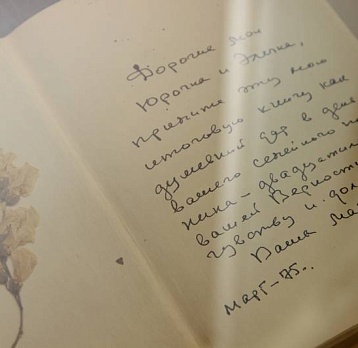 Дорогие мои
Юрочка и Эллочка,
примите эту мою
итоговую книгу как
душевный дар в день
вашего семейного
ника – двадцати
вашей Верности
чувству и
Ваша
март – 75..